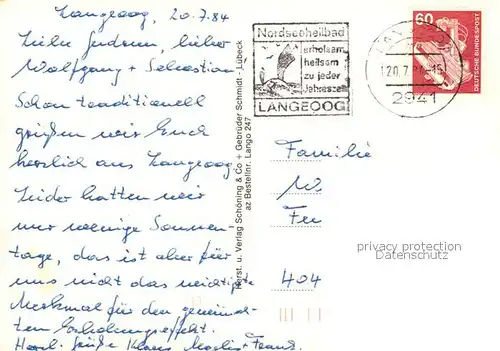 Langeoog, 20.7.84
Liebe Gudrun, lieber
Wolfgang + Sebastian
Schon traditionell
grüßen wir Euch
herzlich aus Langeoog
Leider hatten wir
nur wenige Sonnen
tage, das ist aber für
uns nicht das wichtigste
Merkmal für den gewünsch-
ten Erholungseffekt.
Herzl. Grüße Klaus
Nordseeheilbad
erholsam
heilsam
zu jeder
Jahreszeit
LANGEOOG
20.7.84-15
2941
60
DEUTSCHE BUNDESPOST
Familie
W.
404
privacy protection
Datenschutz
Herst. u. Verlag Schöning & Co + Gebrüder Schmidt - Lübeck
az Bestellnr. Lango 247